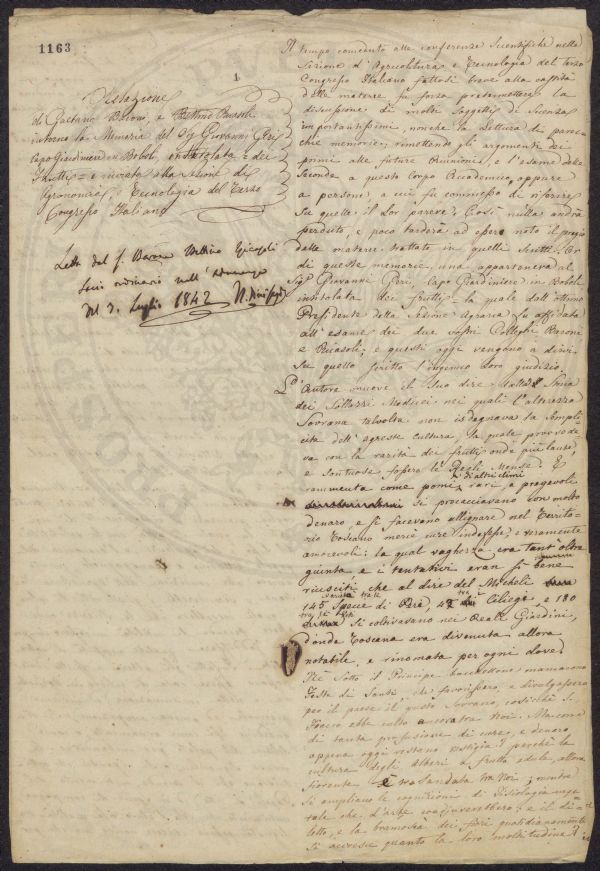 1163
1
Relazione
di Gaetano Baroni, e Bettino Ricasoli
intorno la Memoria del Sig Giovanni Geri
Capo Giardiniere in Boboli, intitolata = dei
frutti = e inviata alla sezione di
Agronomia, e Tecnologia del Terzo
Congresso Italiano
Letta dal S. Barone Bettino Ricasoli
Socio ordinario nell' Adunanza
del 3. Luglio 1842
Il tempo conceduto alle conferenze Scientifiche nella
Sezione d'Agricoltura e Tecnologia del terzo
Congresso Italiano fattosi breve alla vastità
delle materie fu forza pretermettere la
discussione di molti Soggetti di Scienza
importantissimi, nonchè la lettura di parec-
chie memorie; rimettendo gli argomenti dei
primi alle future Riunioni, e l'esame delle
Seconde a questo Corpo Accademico, oppure
a persone, a cui fu commesso di riferire
su quelle il lor parere; Così nulla andrà
perduto, e poco tarderà ad esser noto il pregio
delle materie trattate in quelli Scritti. Or
di queste memorie una apparteneva al
Sigr. Giovanni Geri, Capo Giardiniere in Boboli
intitolata dei frutti; la quale dall'ottimo
Presidente della Sezione Agraria fu affidata
all'esame dei due vostri Colleghi Baroni
e Ricasoli; e questi oggi vengono a dirvi
su quello scritto l'ingenuo loro giudizio.
L'Autore muove il suo dire dalla
dei Sollazzi Medicei nei quali l'altezza
Sovrana talvolta non isdegnava la sempli-
cità dell'agreste cultura, la quale provvede-
va con la rarità dei frutti onde più laute,
e sontuose fossero le Regli Mense. E
rammenta come pomi rari, e pregevoli
d'altri climi
si procacciavano con molto
denaro, e si facevano allignare nel Territo-
rio Toscano mercè cure indefesse, e veramente
amorevoli: la qual vaghezza era tant'oltre
giunta e i tentativi eran sì bene
riusciti, che al dire del Micheli
145 Specie di Pere, 42 Ciliege, e 180
si coltivavano nei Reali Giardini,
donde Toscana era divenuta allora
notabile, e rinomata per ogni dove.
Nè sotto il Principe mancarono
Teste di Santi, che favorissero, e divulgassero
per il paese il gusto Sovrano, cosicchè S.
ebbe culto ancora tra noi. Ma come
di tanta profusione di cure, e denaro,
appena oggi restano vestigia? perchè la
cultura degli alberi a frutto edule, allora
fiorente è trasandata tra noi; mentre
si ampliano le cognizioni di fisiologia vege-
tale che l'arte coadiuverebbero; e il di-
letto, e la bramosia dei fiori quotidianamente
si accresce quanto la loro moltitudine?